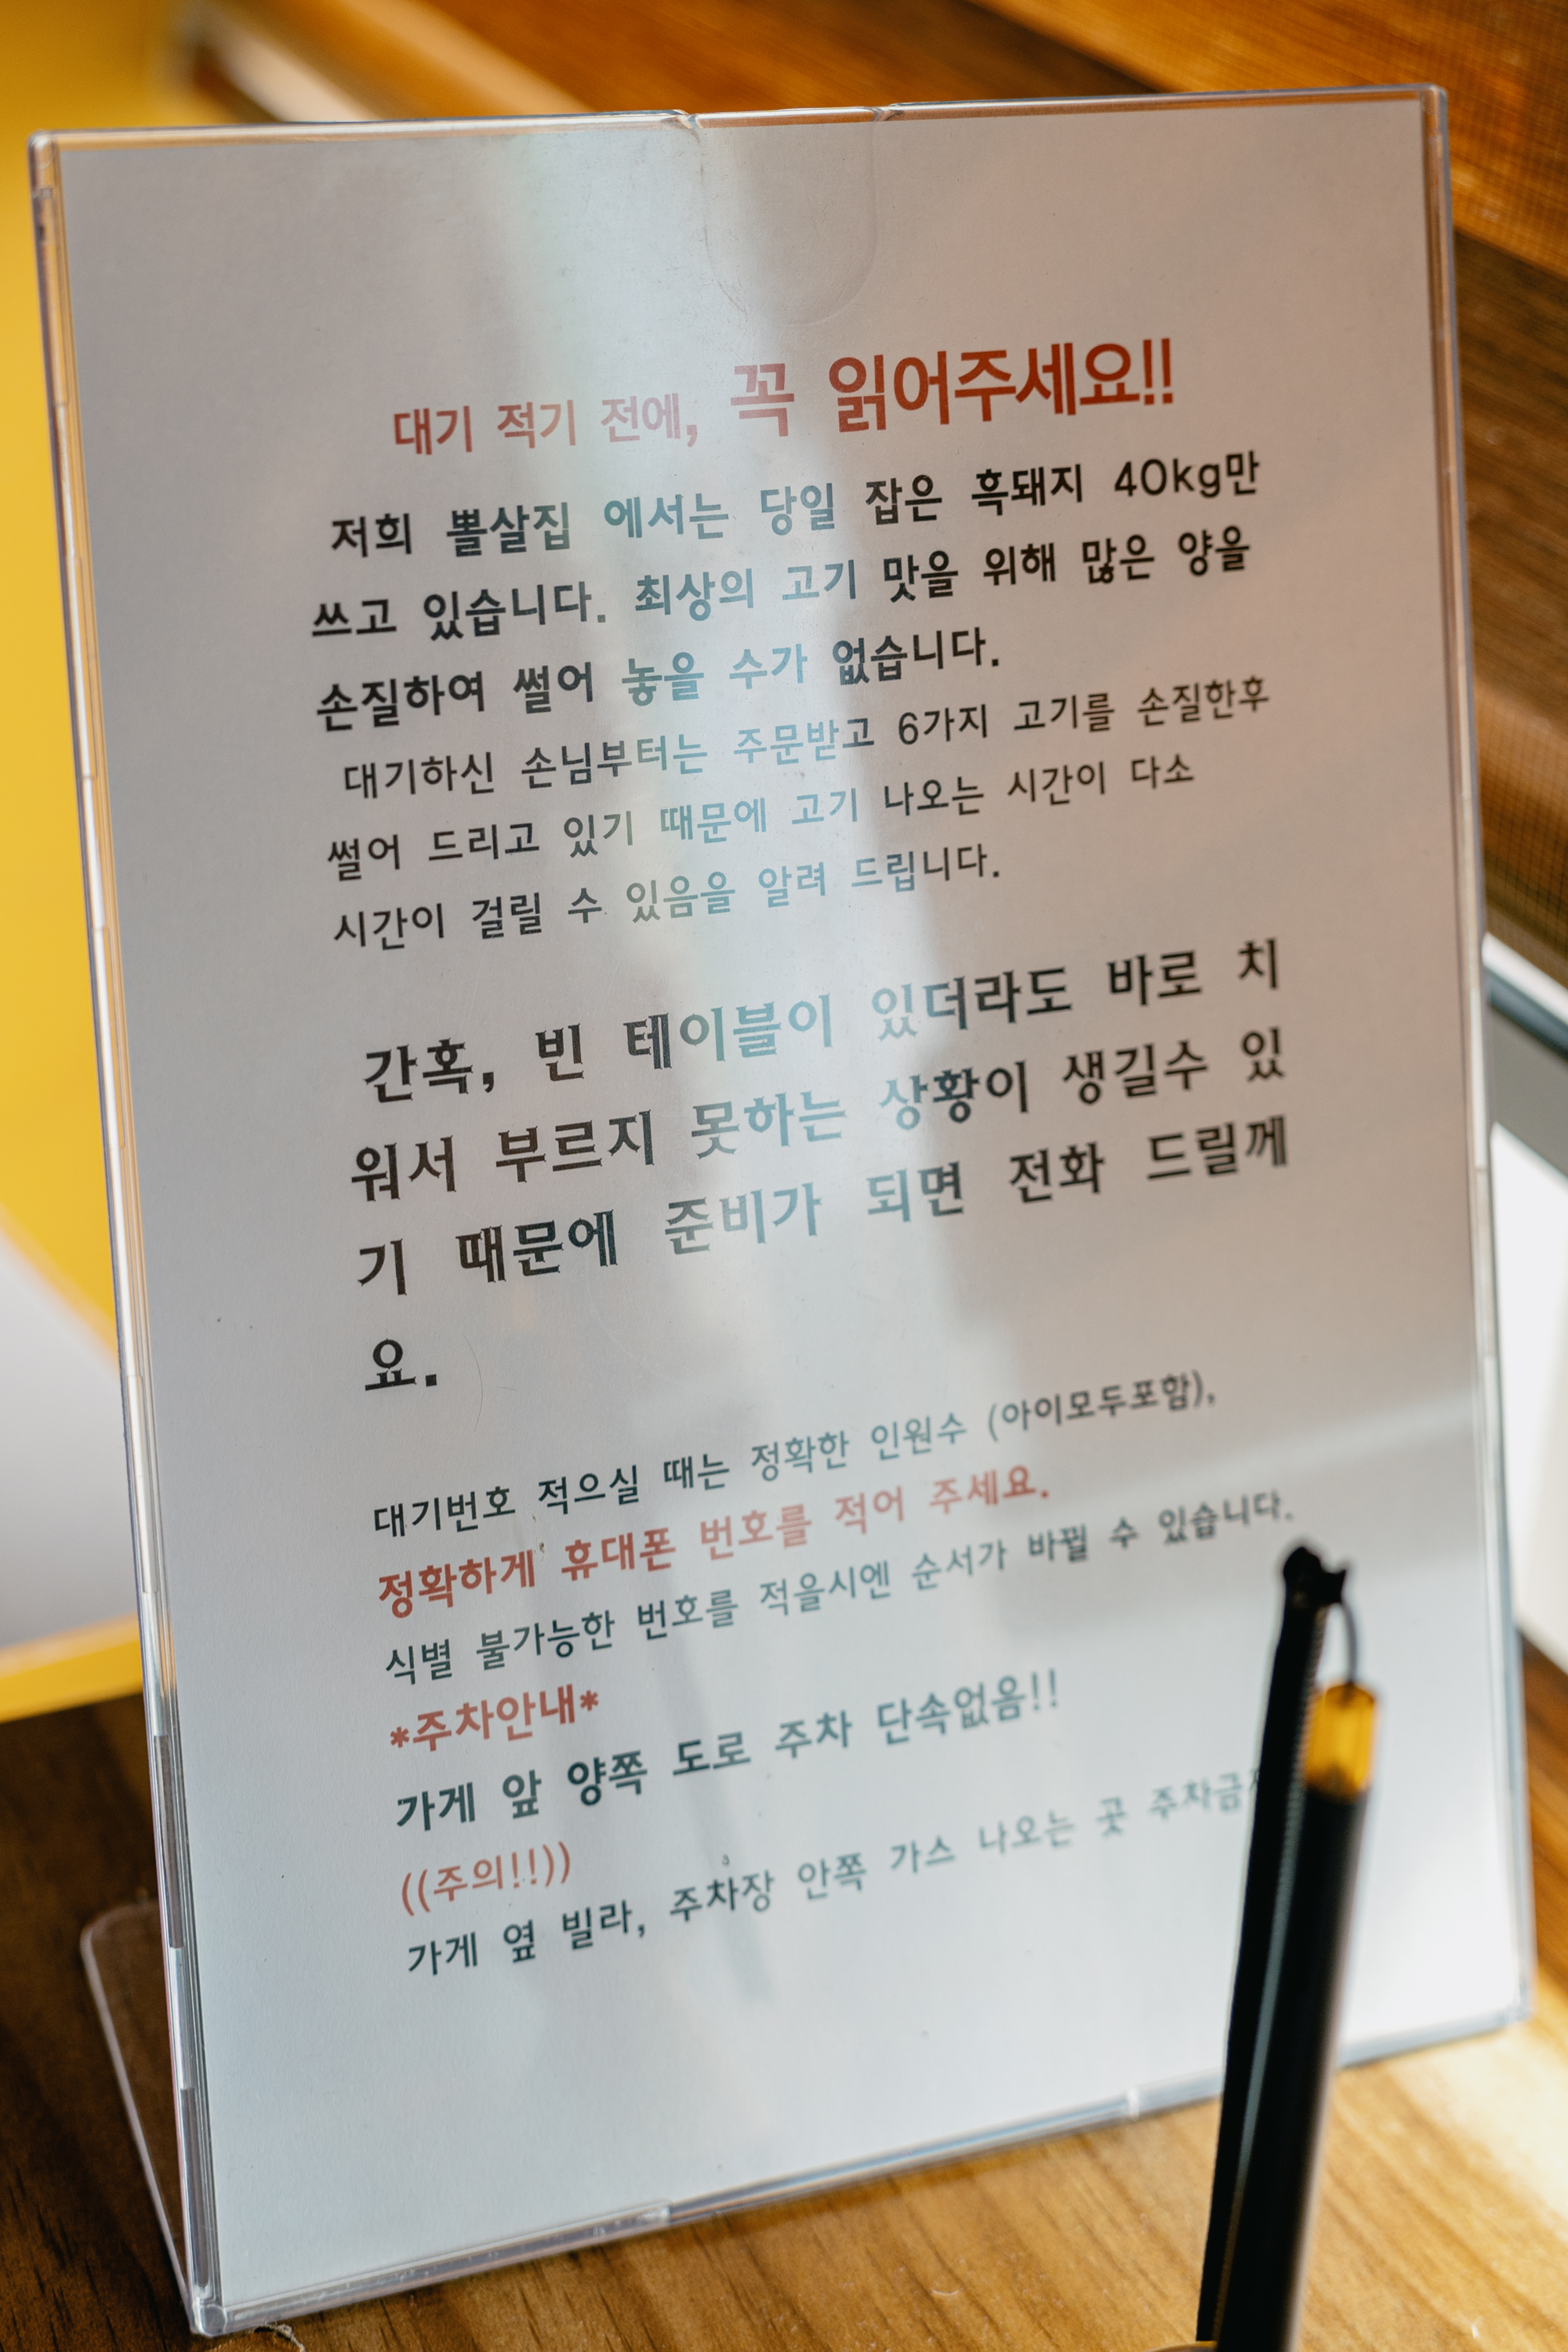 대기 적기 전에, 꼭 읽어주세요!!
저희 뽈살집 에서는 당일 잡은 흑돼지 40kg만
쓰고 있습니다. 최상의 고기 맛을 위해 많은 양을
손질하여 썰어 놓을 수가 없습니다.
대기하신 손님부터는 주문받고 6가지 고기를 손질한후
썰어 드리고 있기 때문에 고기 나오는 시간이 다소
시간이 걸릴 수 있음을 알려 드립니다.
간혹, 빈 테이블이 있더라도 바로 치
워서 부르지 못하는 상황이 생길수 있
기 때문에 준비가 되면 전화 드릴께
요.
대기번호 적으실 때는 정확한 인원수 (아이모두포함),
정확하게 휴대폰 번호를 적어 주세요.
식별 불가능한 번호를 적을시엔 순서가 바뀔 수 있습니다.
*주차안내*
가게 앞 양쪽 도로 주차 단속없음!!
((주의!!))
가게 옆 빌라, 주차장 안쪽 가스 나오는 곳